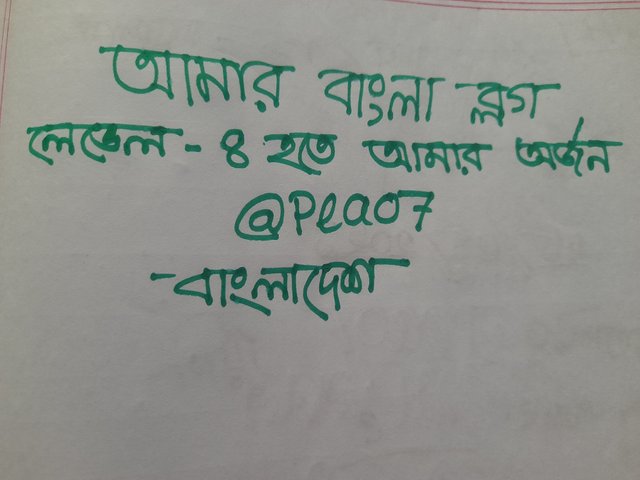 আমার বাংলা ব্লগ
লেভেল - ৪ হতে আমার অর্জন
@Pea07
-বাংলাদেশ